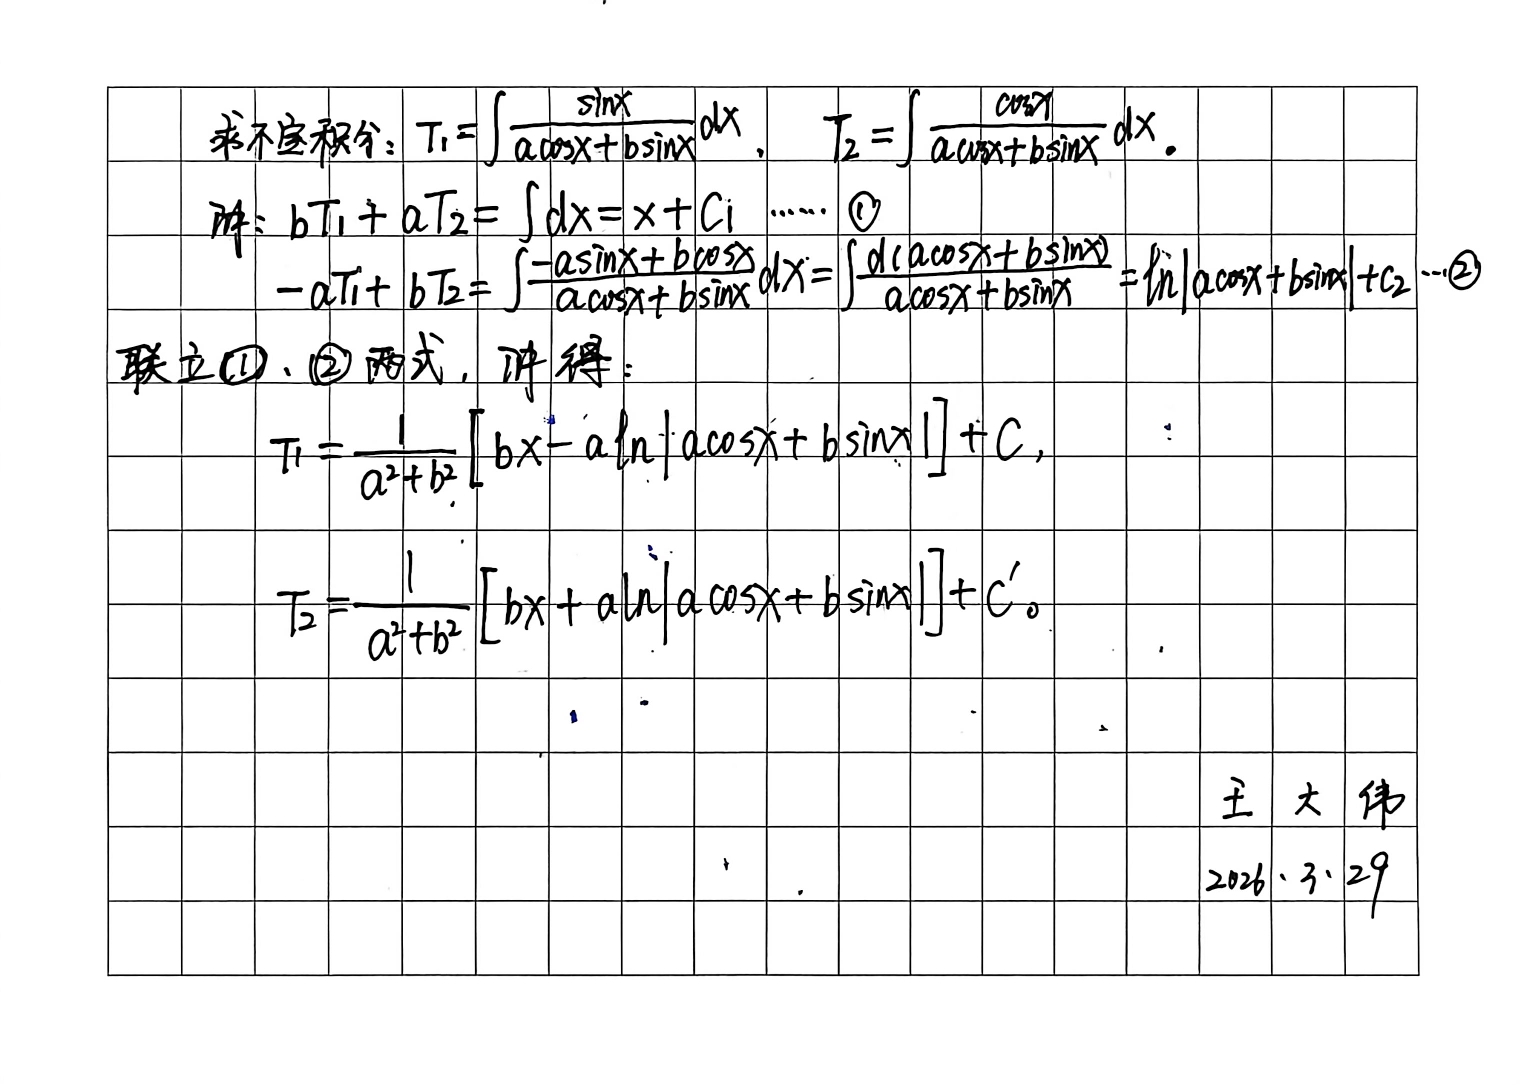 求不定积分：T₁=∫ sinx/(acosx+bsinx) dx， T₂=∫ cosx/(acosx+bsinx) dx.
解：bT₁+aT₂=∫dx=x+C₁ …… ①
-aT₁+bT₂=∫ (-asinx+bcosx)/(acosx+bsinx) dx=∫ d(acosx+bsinx)/(acosx+bsinx) =ln|acosx+bsinx|+C₂ …②
联立①、②两式，解得：
T₁=1/(a²+b²) [bx-aln|acosx+bsinx|]+C,
T₂=1/(a²+b²) [bx+aln|acosx+bsinx|]+C′。
王大伟
2026.3.29